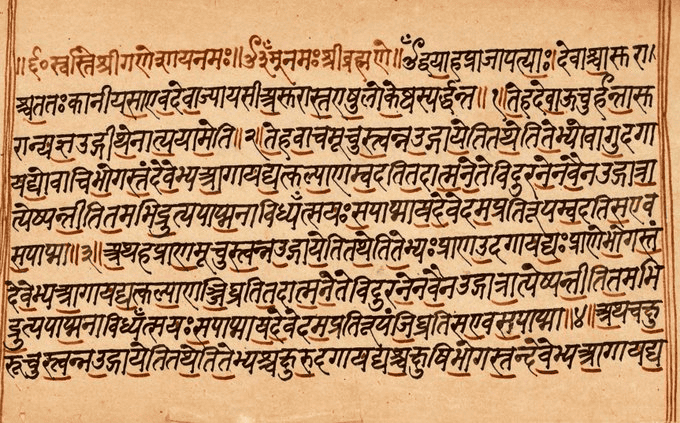 ॥६०स्वस्तिश्रीगणेशायनमः॥ॐनमःश्रीब्रह्मणे॥ॐद्वयाहप्राजापत्याः।देवाश्चासुरा।
श्चततःकानीयसाएवदेवाज्यायसाअसुरास्तएषुलोकेष्वस्पर्द्धन्त॥१॥तेहदेवाऊचुर्हन्तासु
रान्यज्ञउद्गीथेनात्ययामेति॥२॥तेहवाचमूचुस्त्वन्नउद्गायेतितथेतितेभ्योवागुदगा
यद्योवाचिभोगस्तंदेवेभ्यआगायद्यत्कल्याणम्वदतितदात्मनेतेविदुरनेनवैनउद्गात्रा
त्येष्यन्तीतितमभिद्रुत्यपाप्मनाविध्यँत्सयःसपाप्मायदेवेदमप्रतिरूपम्वदतिसएव
सपाप्मा॥३॥अथहप्राणमूचुस्त्वन्नउद्गायेतितथेतितेभ्यःप्राणउदगायद्यःप्राणेभोगस्तं
देवेभ्यआगायद्यत्कल्याणञ्जिघ्रतितदात्मनेतेविदुरनेनवैनउद्गात्रात्येष्यन्तीतितमभि
द्रुत्यपाप्मनाविध्यँत्सयःसपाप्मायदेवेदमप्रतिरूपंजिघ्रतिसएवसपाप्मा॥४॥अथचक्षु
रूचुस्त्वन्नउद्गायेतितथेतितेभ्यश्चक्षुरुदगायद्यश्चक्षुषिभोगस्तन्देवेभ्यआगायद्य